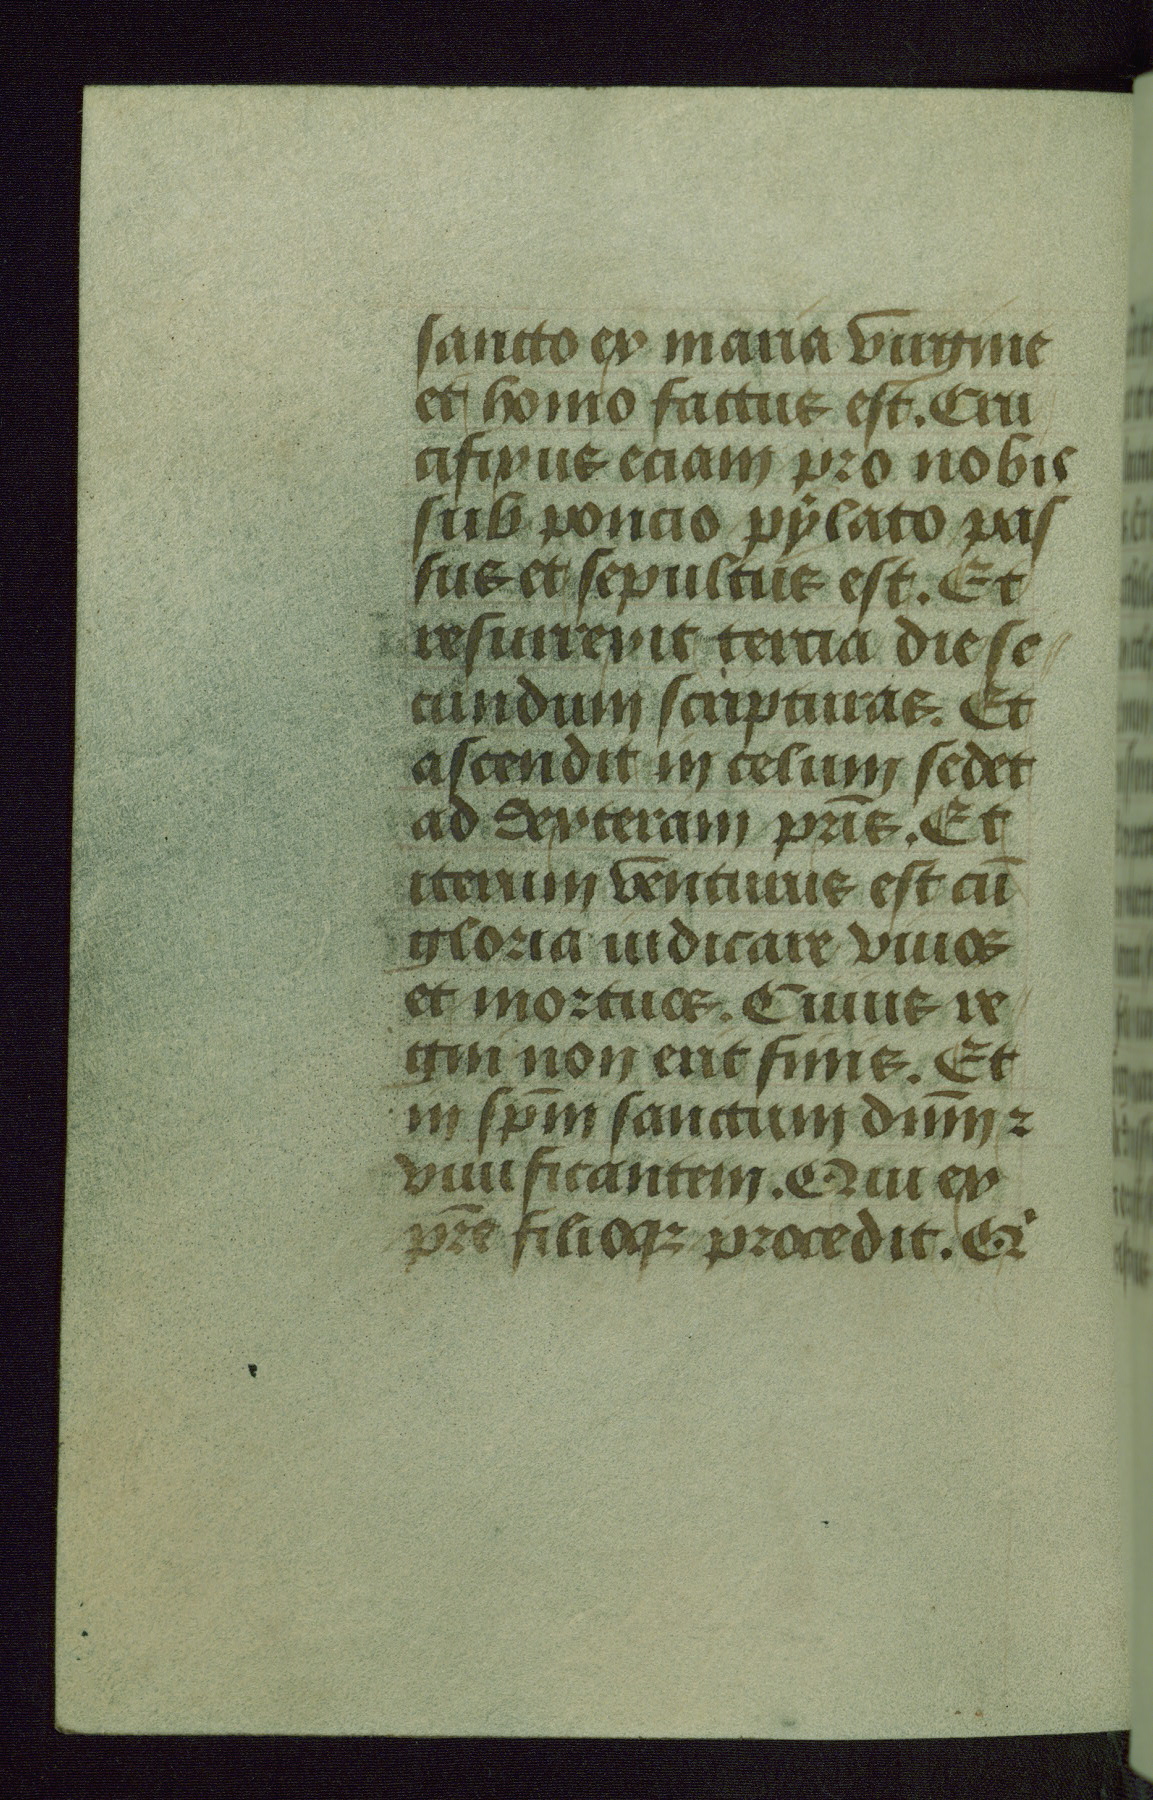 sancto ex maria virgine
et homo factus est. Cru
cifixus eciam pro nobis
sub poncio pylato pas
sus et sepultus est. Et
resurrexit tercia die se
cundum scripturas. Et
ascendit in celum sedet
ad dexteram pr̄is. Et
iterum venturus est cū
gloria iudicare viuos
et mortuos. Cuius re
gni non erit finis. Et
in sp̄m sanctum dnm̄ ⁊
viuificantem. Qui ex
pr̄e filioqꝫ procedit. Qͥ